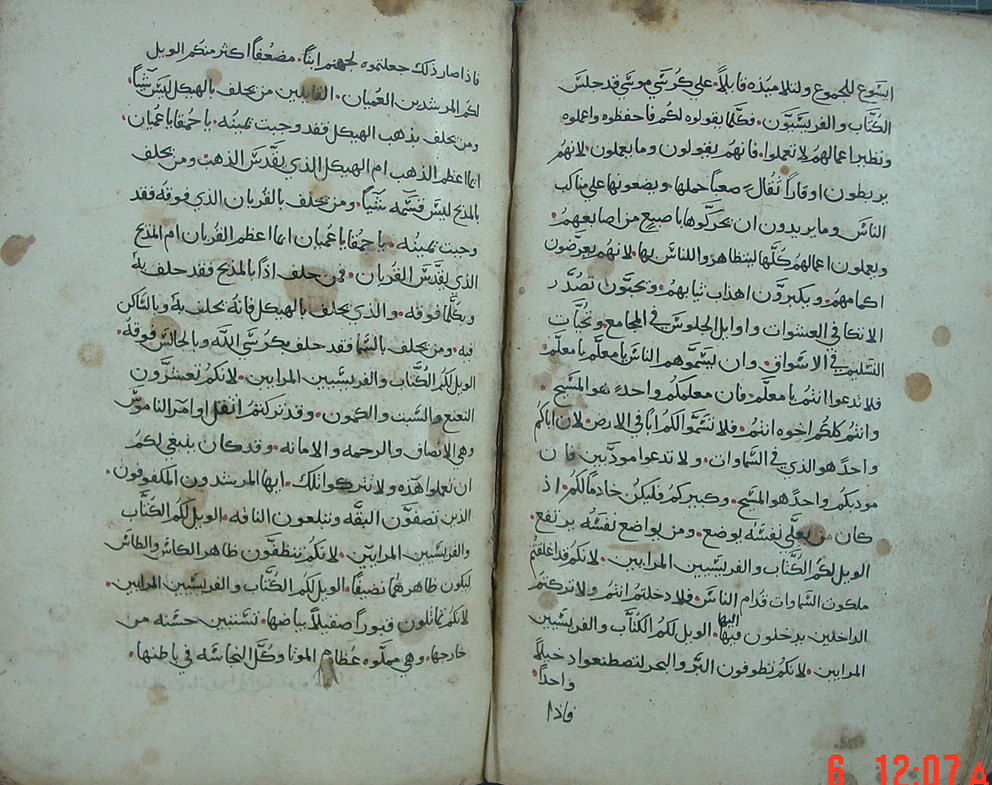 ايسوع للجموع ولتلاميذه قايلاً. علي كرسي موسي قد جلس
الكتاب والفريسيون. فكلما يقولوه لكم فاحفظوه واعملوه
ونظير اعمالهم لا تعملوا. فانهم يقولون وما يعملون. لانهم
يربطون اوقاراً ثقال صعباً حملها. ويضعونها علي مناكب
الناس وما يريدون ان يحركوها باصبع من اصابعهم.
ويعملون اعمالهم كلها ليتظاهروا للناس بها. لانهم يعرضون
اكمامهم. ويكبرون اهداب ثيابهم. ويحبون تصدر
الاتكا في العشوات واوايل الجلوس في المجامع. وتحيات
التسليم في الاسواق. وان يسموهم الناس يا معلم يا معلم.
فلا تدعوا انتم يا معلم. فان معلمكم واحد هو المسيح.
وانتم كلكم اخوه انتم. فلا تسموا لكم اباً في الارض. لان اباكم
واحد هو الذي في السماوات. ولا تدعوا مودبين فان
مودبكم واحد هو المسيح. وكبيركم فليكن خادماً لكم. اذ
كان من يعلي نفسه يوضع. ومن يواضع نفسه يرتفع.
الويل لكم الكتاب والفريسيين المرايين. لانكم قد اغلقتم
ملكوت السماوات قدام الناس. فلا دخلتم انتم ولا تركتم
الداخلين يدخلون فيها اليها. الويل لكم الكتاب والفريسيين
المرايين. لانكم تطوفون البر والبحر لتصطنعوا دخيلاً
واحداً.
فاذا
فاذا صار ذلك جعلتموه لجهنم ابناً. مضعفاً اكثر منكم الويل
لكم المرشدين العميان. القايلين من يحلف بالهيكل ليس شياً.
ومن يحلف بذهب الهيكل فقد وجبت يمينه. يا حمقا يا عميان.
ايما اعظم الذهب ام الهيكل الذي يقدس الذهب. ومن يحلف
بالمذبح ليس قسمه شياً. ومن يحلف بالقربان الذي فوقه فقد
وجبت يمينه. يا حمقا يا عميان ايما اعظم القربان ام المذبح
الذي يقدس القربان. فمن حلف اذاً بالمذبح فقد حلف به
وبكلما فوقه. والذي يحلف بالهيكل فانه يحلف به وبالساكن
فيه. ومن يحلف بالسما فقد حلف بكرسي الله وبالجالس فوقه.
الويل لكم الكتاب والفريسيين المرايين. لانكم تعشرون
النعنع والشبت والكمون. وقد تركتم اثقل اوامر الناموس
وهي الانصاف والرحمه والامانه. وقد كان ينبغي لكم
ان تعملوا هذه ولا تتركوا تلك. ايها المرشدون المكفوفون.
الذين تصفون البقه وتبلعون الناقه. الويل لكم الكتاب
والفريسيين المرايين. لانكم تنظفون ظاهر الكاس والطاس
ليكون ظاهرهما نضيفاً. الويل لكم الكتاب والفريسيين المرايين.
لانكم تماثلون قبوراً صقيلاً بياضها. تستبين حسنه من
خارجها. وهي مملوه عظام الموتا وكل النجاسه في باطنها.
6 12:07 A